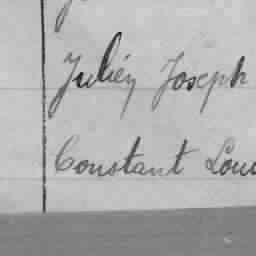 Julien Joseph
Constant Loui